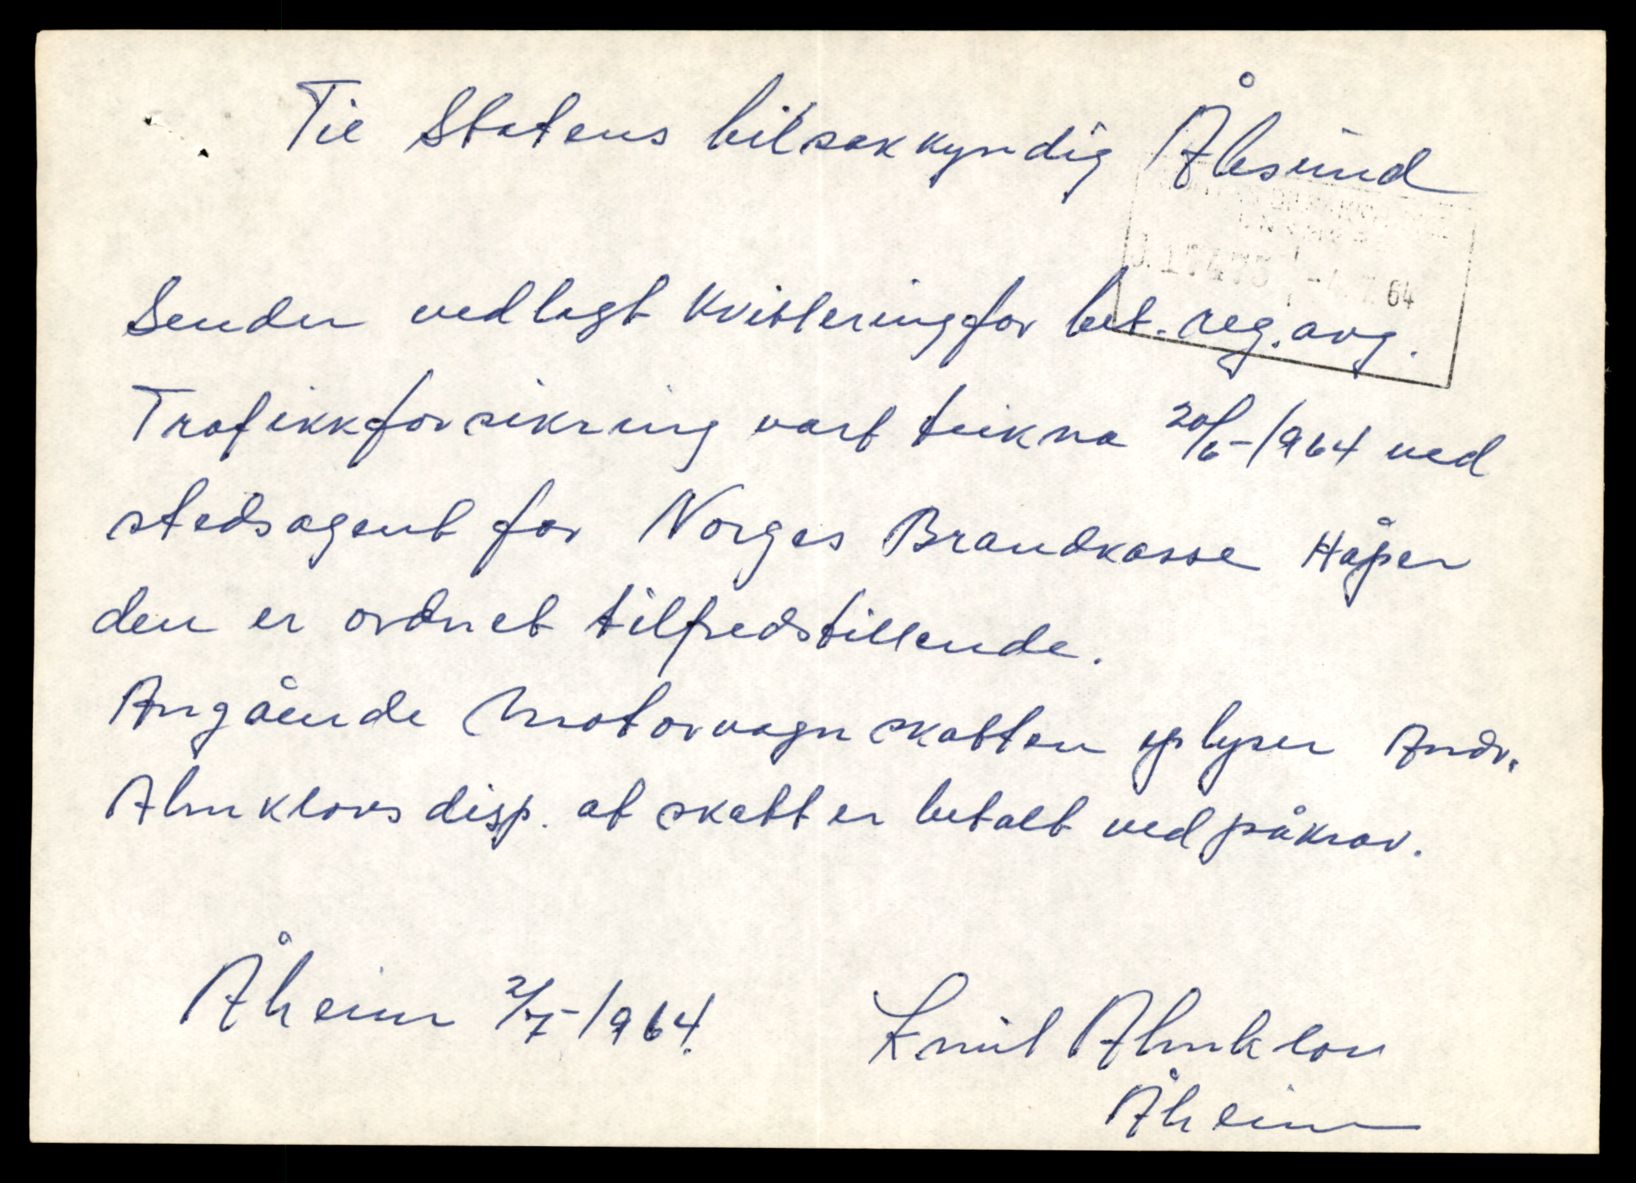 Til Statens bilsakkyndig Ålesund
64
Sender vedlagt kvittering for bet. reg. avg.
Trafikkforsikring vart teikna 20/6-1964 ved
stedsagent for Norges Brandkasse Håper
den er ordnet tilfredstillende.
Angående Motorvagnskatten oplyser Andr.
Almklovs disp. at skatt er betalt ved påkrav.
Åheim 2/7-1964.
Emil Almklov
Åheim